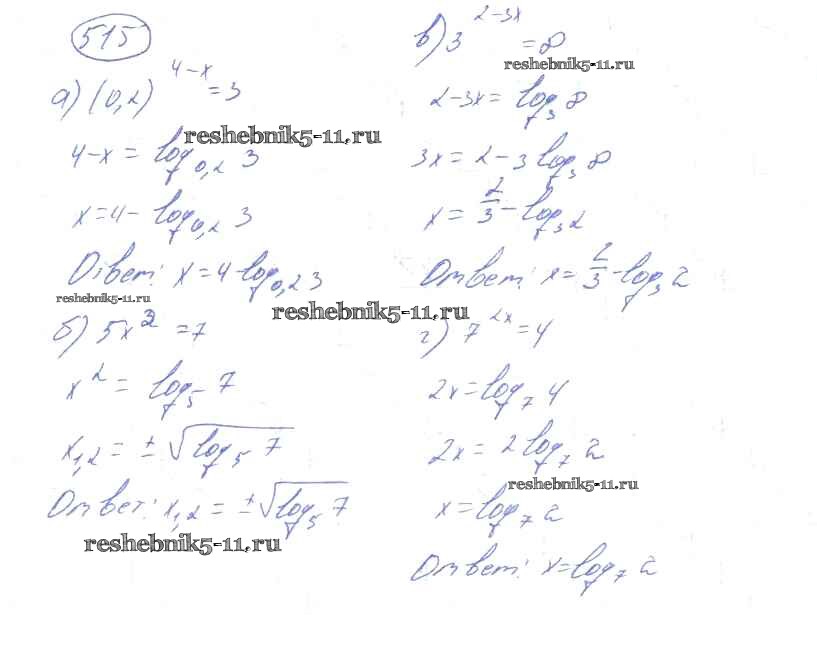 515
а) (0,2)^{4-x} = 3
reshebnik5-11.ru
4-x = log_{0,2} 3
x = 4 - log_{0,2} 3
Ответ: x = 4 - log_{0,2} 3
reshebnik5-11.ru
reshebnik5-11.ru
б) 5x^2 = 7
x^2 = log_5 7
x_{1,2} = ± √log_5 7
Ответ: x_{1,2} = ± √log_5 7
reshebnik5-11.ru
в) 3^{2-3x} = 8
reshebnik5-11.ru
2-3x = log_3 8
3x = 2 - 3 log_3 8
x = 2/3 - log_3 2
Ответ: x = 2/3 - log_3 2
г) 7^{2x} = 4
2x = log_7 4
2x = 2 log_7 2
reshebnik5-11.ru
x = log_7 2
Ответ: x = log_7 2